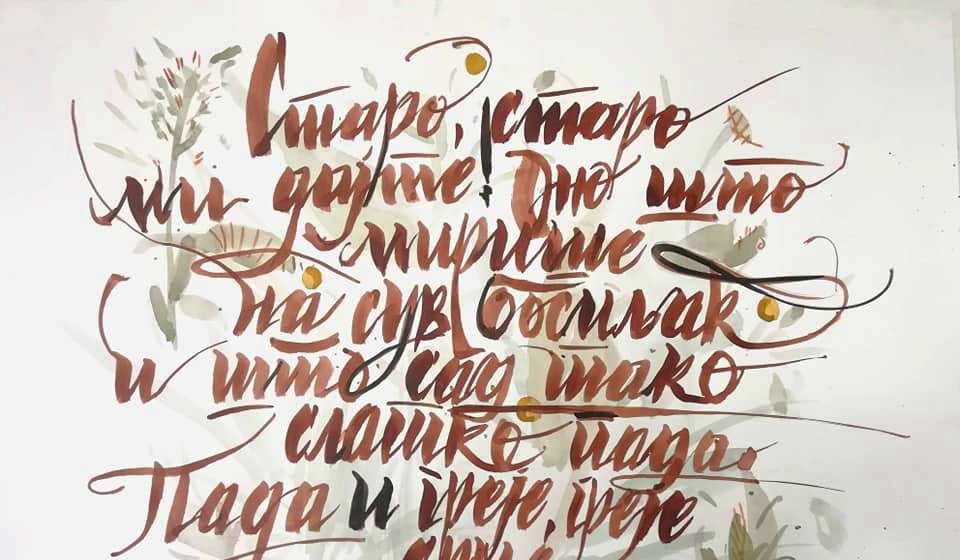 Старо, старо
ми дајте! Оно што
мирише
на сув босиљак
и што сад тако
слатко пада.
Пада и греје, греје